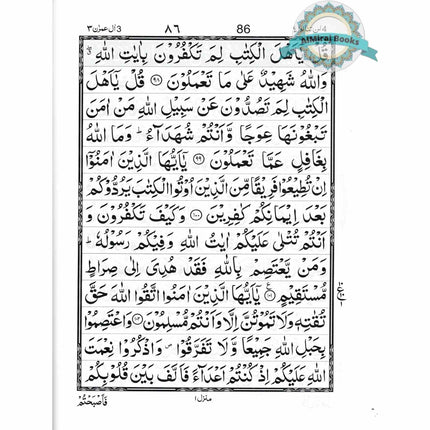 3 اٰل عمرٰن ٣
٨٦
86
AlMiraj Books
قُلْ يٰۤاَهْلَ الْكِتٰبِ لِمَ تَكْفُرُوْنَ بِاٰيٰتِ اللّٰهِ ۖۗ
وَاللّٰهُ شَهِيْدٌ عَلٰى مَا تَعْمَلُوْنَ ﴿٩٨﴾ قُلْ يٰۤاَهْلَ
الْكِتٰبِ لِمَ تَصُدُّوْنَ عَنْ سَبِيْلِ اللّٰهِ مَنْ اٰمَنَ
تَبْغُوْنَهَا عِوَجًا وَّاَنْتُمْ شُهَدَآءُ ؕ وَمَا اللّٰهُ
بِغَافِلٍ عَمَّا تَعْمَلُوْنَ ﴿٩٩﴾ يٰۤاَيُّهَا الَّذِيْنَ اٰمَنُوْۤا
اِنْ تُطِيْعُوْا فَرِيْقًا مِّنَ الَّذِيْنَ اُوْتُوا الْكِتٰبَ يَرُدُّوْكُمْ
بَعْدَ اِيْمَانِكُمْ كٰفِرِيْنَ ﴿١٠٠﴾ وَكَيْفَ تَكْفُرُوْنَ وَ
اَنْتُمْ تُتْلٰى عَلَيْكُمْ اٰيٰتُ اللّٰهِ وَفِيْكُمْ رَسُوْلُهٗ ؕ
وَمَنْ يَّعْتَصِمْ بِاللّٰهِ فَقَدْ هُدِىَ اِلٰى صِرَاطٍ
مُّسْتَقِيْمٍ ﴿١٠١﴾ يٰۤاَيُّهَا الَّذِيْنَ اٰمَنُوا اتَّقُوا اللّٰهَ حَقَّ
تُقٰتِهٖ وَلَا تَمُوْتُنَّ اِلَّا وَاَنْتُمْ مُّسْلِمُوْنَ ﴿١٠٢﴾ وَاعْتَصِمُوْا
بِحَبْلِ اللّٰهِ جَمِيْعًا وَّلَا تَفَرَّقُوْا ۪ وَاذْكُرُوْا نِعْمَتَ
اللّٰهِ عَلَيْكُمْ اِذْ كُنْتُمْ اَعْدَآءً فَاَلَّفَ بَيْنَ قُلُوْبِكُمْ
منزل ١
فَاَصْبَحْتُمْ